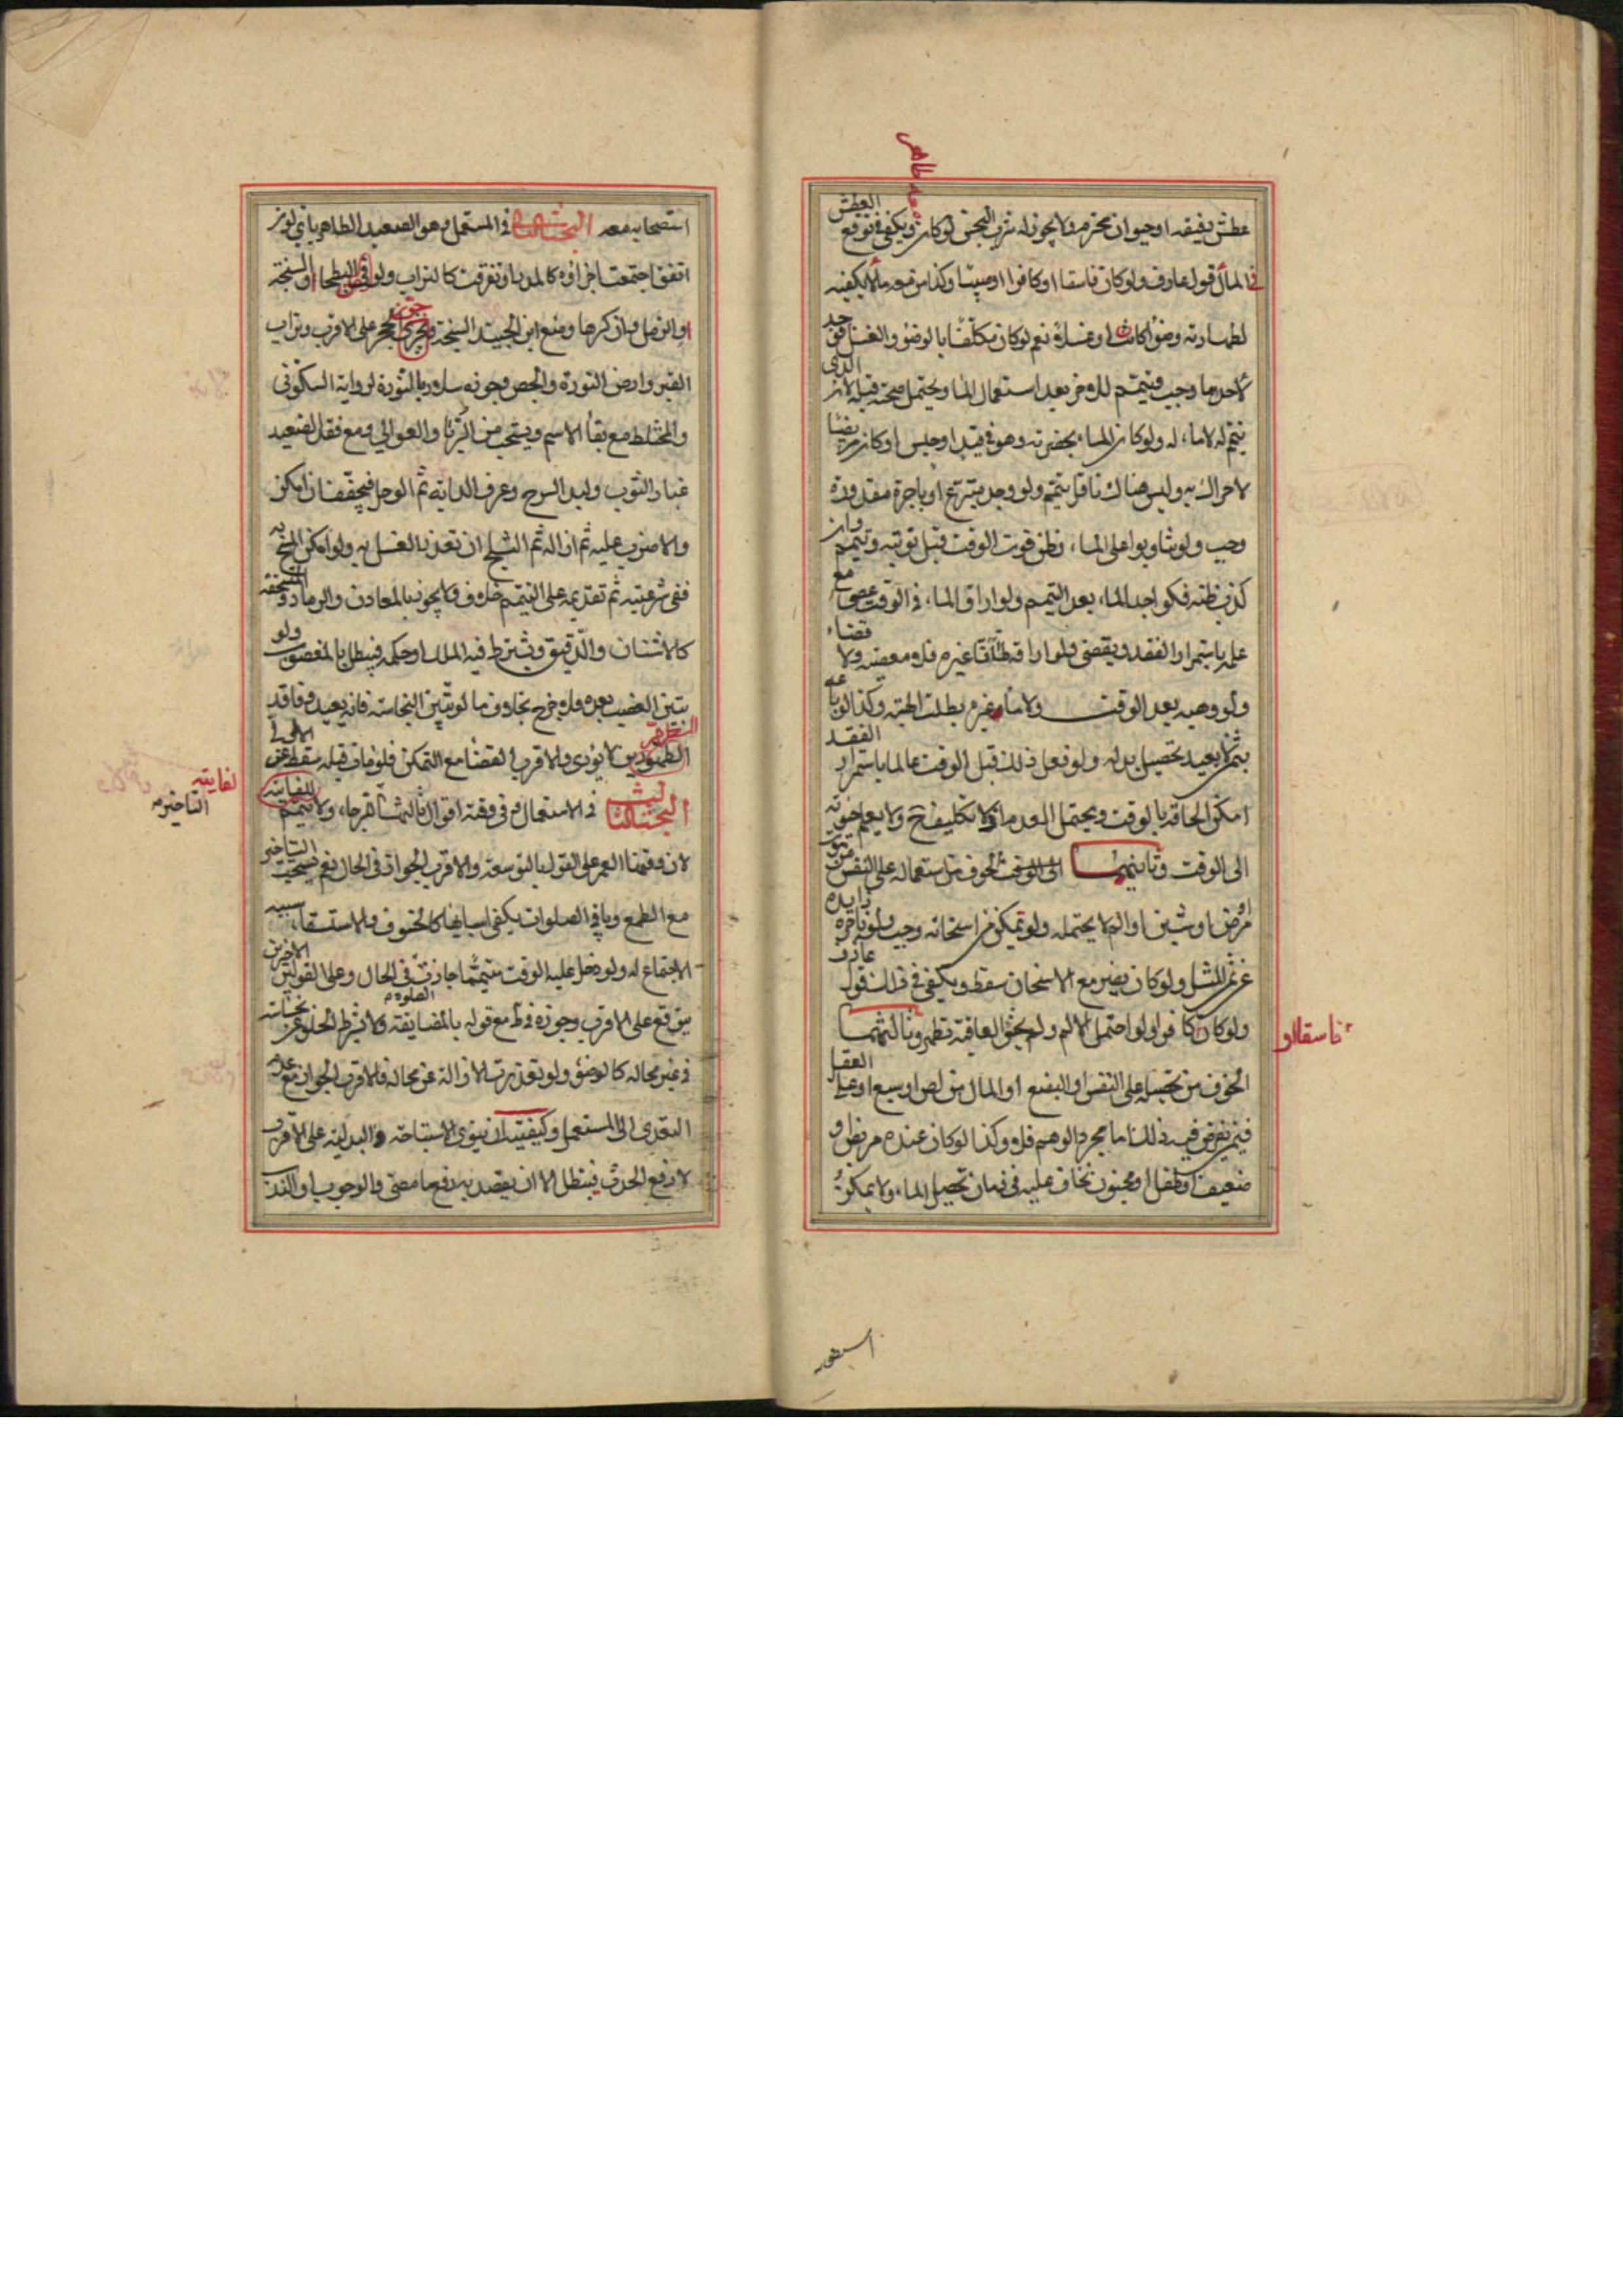 عطش رفيقه او حيوان محترم ولا يجوز له شرب النجس لو كان ويكفى فى توقع العطش
معه طاهر
فى المال قول عارف ولو كان فاسقا او كافرا او صبيا وكذا من معه ما لا يكفيه
لطهارته وضوءا كانت او غسلا نعم لو كان مكلفا بالوضوء والغسل فوجد
لاحدهما وجب فيتيمم للاخر بعد استعمال الماء ويحتمل صحته قبله لان الذى
يتيمم له لا ماء له ولو كان الماء بحضرته وهو فى قيد او حبس او كان مريضا
لا حراك به وليس هناك ناقل يتيمم ولو وجد متبرع او باجرة مقدورة
وجب ولو تناوبوا على الماء وظن فوت الوقت قبل نوبته وتيمم وان
كذب ظنه فكواجد الماء بعد التيمم ولو اراق الماء فى الوقت عصى مع
علمه باستمرار الفقد ويقضى ولو اراقه ظانا غيره فلا معصية ولا قضاء
ولو وهبه بعد الوقت ولا ماء غيره بطلت الهبة وكذا لو باعه
بثمن لا بعيد تحصيل بدله ولو فعل ذلك قبل الوقت عالما باستمرار الفقد
امكن الحاقه بالوقت ويحتمل العدم اذ لا تكليف ح ولا يعلم حيوته
الى الوقت وثانيهما الى الوقت الخوف من استعماله على النفس من
مرض او شين او الم لا يحتمله ولو تمكن من اسخانه وجب ولو باجرة زايدة
عن ثمن المثل ولو كان يضر مع الاسخان سقط ويكفى فى ذلك قول عارف
ولو كان كافرا ولو احتمل الالم ولم يخش العاقبة تطهر وثالثهما
فاسقا او
الخوف من تحصيله على النفس او البضع او المال من لص او سبع او على العقل
فيمن يعرض فيه ذلك اما مجرد الوهم فلا وكذا لو كان عنده مريض او
ضعيف او طفل او مجنون يخاف عليه فى زمان تحصيل الماء ولا يمكنه
استصحابه
استصحابه معه البحث الثانى فى المستعمل وهو الصعيد الطاهر باى لون
اتفق اجتمعت اجزاؤه كالمدر او تفرقت كالتراب ولو البطحاء او السبخة
والرمل وان كرها ومنع ابن الجنيد السبخة ويجزى الحجر على الاقرب وتراب
القبر وارض النورة والجص وجوزه سلار بالنورة لرواية السكونى
والمختلط مع بقاء الاسم ويستحب من الربا والعوالى ومع فقد الصعيد
غبار الثوب ولبد السرج وعرف الدابة ثم الوحل فيجففه ان امكن
والا ضرب عليه ثم ازاله ثم الثلج ان تعذر الغسل به ولو امكن المسح به
ففى شرعيته ثم تقديمه على التيمم خلاف ولا يجوز بالمعادن والرماد والمنسحقة
كالاشنان والدقيق ويشترط فيه الملك او حكمه فيبطل بالمغصوب ولو
تبين الغضب بعده فلا حرج بخلاف ما لو تبين النجاسة فانه يعيد وفاقد
الطهورين لا يؤدى والاقرب القضاء مع التمكن فلو مات قبله سقط عن
البحث الثالث فى الاستعمال وفى وقته اقوال ثالثها تقربها ولا يتيمم
لغايته
التاخير
لان وقتها العمر على القول بالتوسعة والاقرب الجواز فى الحال نعم يستحب التاخير
مع الطمع وباقى الصلوات يكفى اسبابها كالخسوف والاستسقاء سببه
الاجتماع له ولو دخل عليه الوقت متيمما جاز فى الحال وعلى القولين الاخرين
يتوقع على الاقرب وجوزه فى ط مع قوله بالمضايقة ولا يشترط الخلو عن نجاسة
فى غير محاله كالوضوء ولو تعذرت الازالة عن محاله فالاقرب الجواز مع عدم
التعدى الى المستعمل وكيفيته ان ينوى الاستباحة والبدلية على الاقرب
لا رفع الحدث فيبطل الا ان يقصد به رفع ما مضى والوجوب او الندب